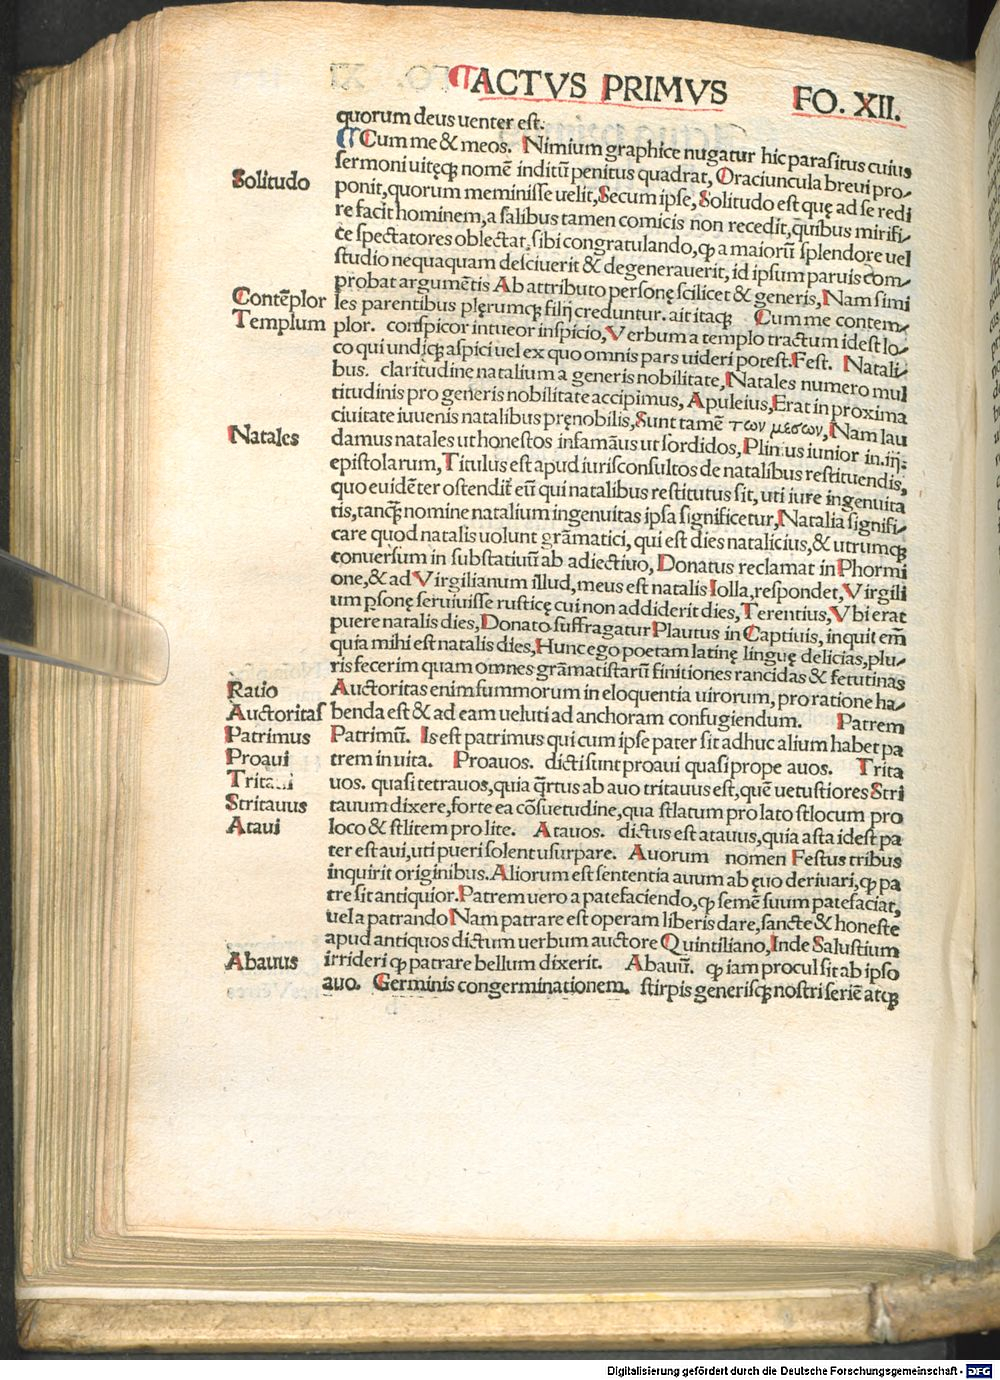 ACTVS PRIMVS FO. XII.
quorum deus uenter est.
Cum me & meos. Nimium graphice nugatur hic parasitus cuius
sermoni uiteqꝫ nomē inditū penitus quadrat, Oraciuncula breui pro-
Solitudo
ponit, quorum meminisse uelit, Secum ipse, Solitudo est quę ad se redi
re facit hominem, a salibus tamen comicis non recedit, q̄uibus mirifi-
ce spectatores oblectat, sibi congratulando, qꝫ a maiorū splendore uel
studio nequaquam desciuerit & degenerauerit, id ipsum paruis com-
probat argumētis Ab attributo personę scilicet & generis, Nam simi
Contēplor
les parentibus plęrumqꝫ filij creduntur. ait itaqꝫ Cum me contem-
Templum
plor. conspicor intueor inspicio, Verbum a templo tractum idest lo-
co qui undiqꝫ aspici uel ex quo omnis pars uideri potest. Fest. Natali-
bus. claritudine natalium a generis nobilitate, Natales numero mul
titudinis pro generis nobilitate accipimus, Apuleius, Erat in proxima
ciuitate iuuenis natalibus pręnobilis, Sunt tamē των μεσων, Nam lau
Natales
damus natales ut honestos infamāus ut sordidos, Plinius iunior in .iij:
epistolarum, Titulus est apud iurisconsultos de natalibus restituendis,
quo euidēter ostendit̄ eū qui natalibus restitutus sit, uti iure ingenuita
tis, tanqꝫ nomine natalium ingenuitas ipsa significetur, Natalia signifi-
care quod natalis uolunt grāmatici, qui est dies natalicius, & utrumqꝫ
conuersum in substatiuū ab adiectiuo, Donatus reclamat in Phormi
one, & ad Virgilianum illud, meus est natalis Iolla, respondet, Virgili
um psonę seruiuisse rusticę cui non addiderit dies, Terentius, Vbi erat
puere natalis dies, Donato suffragatur Plautus in Captiuis, inquit em̄
quia mihi est natalis dies, Hunc ego poetam latinę linguę delicias, plu-
ris fecerim quam omnes grāmatistarū finitiones rancidas & fetutinas
Ratio
Auctoritas enim summorum in eloquentia uirorum, pro ratione ha-
Auctoritas
benda est & ad eam ueluti ad anchoram confugiendum. Patrem
Patrimus
Patrimū. Is est patrimus qui cum ipse pater sit adhuc alium habet pa
Proaui
trem in uita. Proauos. dicti sunt proaui quasi prope auos. Trita
Tritaui
uos. quasi tetrauos, quia q̄rtus ab auo tritauus est, quē uetustiores Stri
Stritauus
tauum dixere, forte ea cōsuetudine, qua stlatum pro lato stlocum pro
Ataui
loco & stlitem pro lite. Atauos. dictus est atauus, quia asta idest pa
ter est aui, uti pueri solent usurpare. Auorum nomen Festus tribus
inquirit originibus. Aliorum est sententia auum ab ęuo deriuari, qꝫ pa
tre sit antiquior. Patrem uero a patefaciendo, qꝫ semē suum patefaciat,
uel a patrando Nam patrare est operam liberis dare, sancte & honeste
apud antiquos dictum uerbum auctore Quintiliano, Inde Salustium
Abauus
irrideri qꝫ patrare bellum dixerit. Abauū. qꝫ iam procul sit ab ipso
auo. Germinis congerminationem. stirpis generisqꝫ nostri seriē atqꝫ
Digitalisierung gefördert durch die Deutsche Forschungsgemeinschaft - DFG